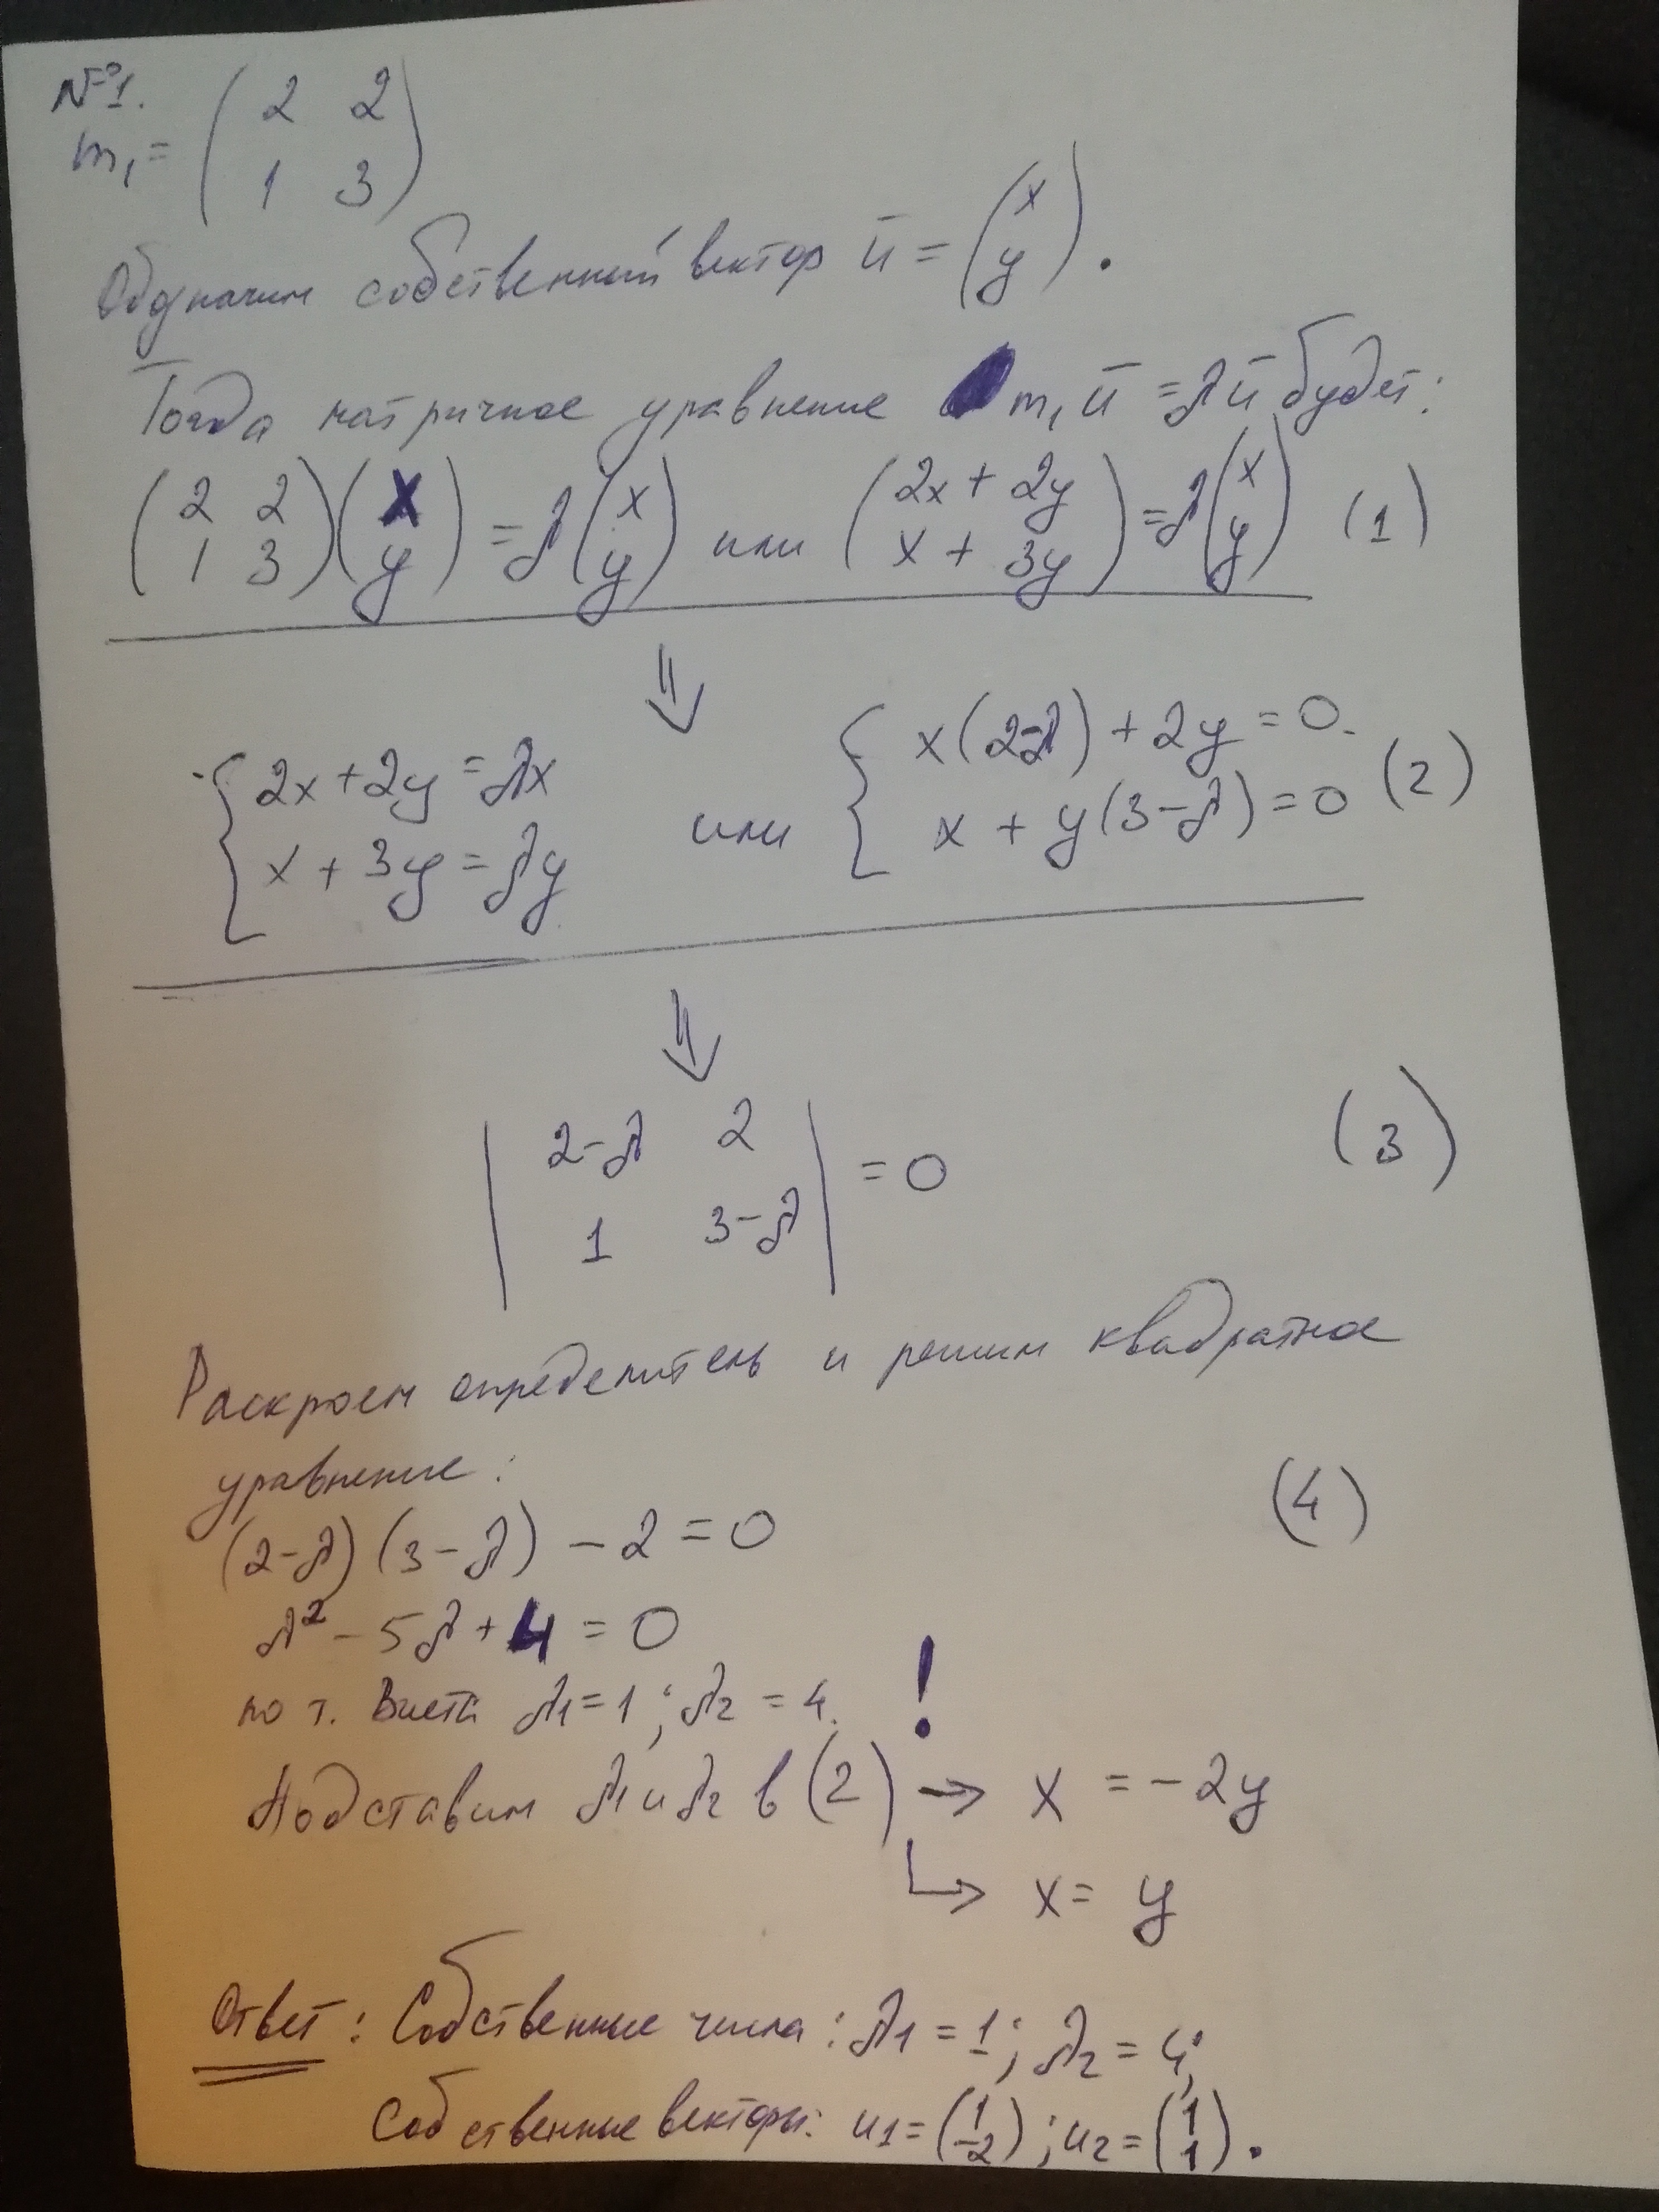 №1.
m₁ = ( 2 2
1 3 )
Обозначим собственный вектор ū = ( x
y ) .
Тогда матричное уравнение m₁ ū = λū будет:
( 2 2
1 3 ) ( x
y ) = λ ( x
y ) или ( 2x + 2y
x + 3y ) = λ ( x
y ) (1)
⇓
{ 2x + 2y = λx
x + 3y = λy или { x(2-λ) + 2y = 0.
x + y(3-λ) = 0 (2)
⇓
| 2-λ 2
1 3-λ | = 0 (3)
Раскроем определитель и решим квадратное
уравнение:
(2-λ) (3-λ) - 2 = 0 (4)
λ² - 5λ + 4 = 0
по т. Виета λ1 = 1 ; λ2 = 4. !
Подставим λ1 и λ2 в (2) → x = -2y
↳ x = y
Ответ: Собственные числа: λ1 = 1; λ2 = 4;
Собственные векторы: u1 = ( 1
-2 ) ; u2 = ( 1
1 ) .